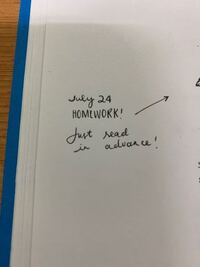 July 24
HOMEWORK!
Just read
in advance!